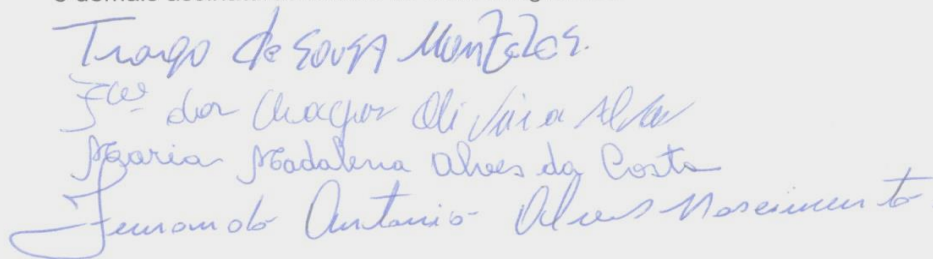 Tiago de Sousa Menezes.
Fco dos Chagas Oliveira Alves
Maria Madalena Alves da Costa
Fernando Antonio Alves Nascimento